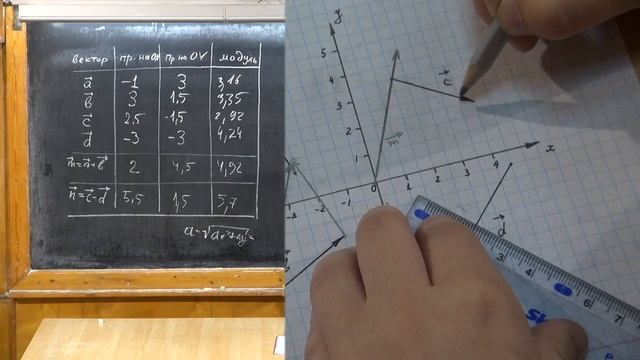 вектор пр. на OX пр на OY модуль
a⃗ -1 3 3,16
b⃗ 3 1,5 3,35
c⃗ 2,5 -1,5 2,92
d⃗ -3 -3 4,24
m⃗=a⃗+b⃗ 2 4,5 4,92
n⃗=c⃗-d⃗ 5,5 1,5 5,7
y
5
4
3
2
1
c⃗
m⃗
x
-3 -2 -1 0 1 2 3 4
d⃗
3 4 5 6 7